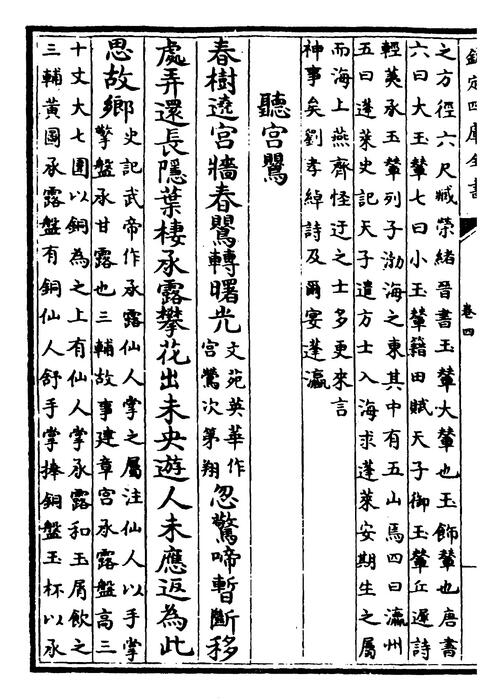 欽定四庫全書
卷四
之方徑六尺臧榮緒晉書玉輦大輦也玉飾輦也唐書
六曰大玉輦七曰小玉輦籍田賦天子御玉輦丘遲詩
輕荑承玉輦列子渤海之東其中有五山焉四曰瀛州
五曰蓬萊史記天子遣方士入海求蓬萊安期生之屬
而海上燕齊怪迂之士多更來言
神事矣劉孝綽詩及爾宴蓬瀛
聽宮鸎
春樹遶宮牆春鸎轉曙光文苑英華作宮鶯次第翔忽驚啼暫斷移
處弄還長隱葉棲承露攀花出未央遊人未應返為此
思故鄉史記武帝作承露仙人掌之屬注仙人以手掌
擎盤承甘露也三輔故事建章宮承露盤高三
十丈大七圍以銅為之上有仙人掌承露和玉屑飲之
三輔黃圖承露盤有銅仙人舒手掌捧銅盤玉杯以承